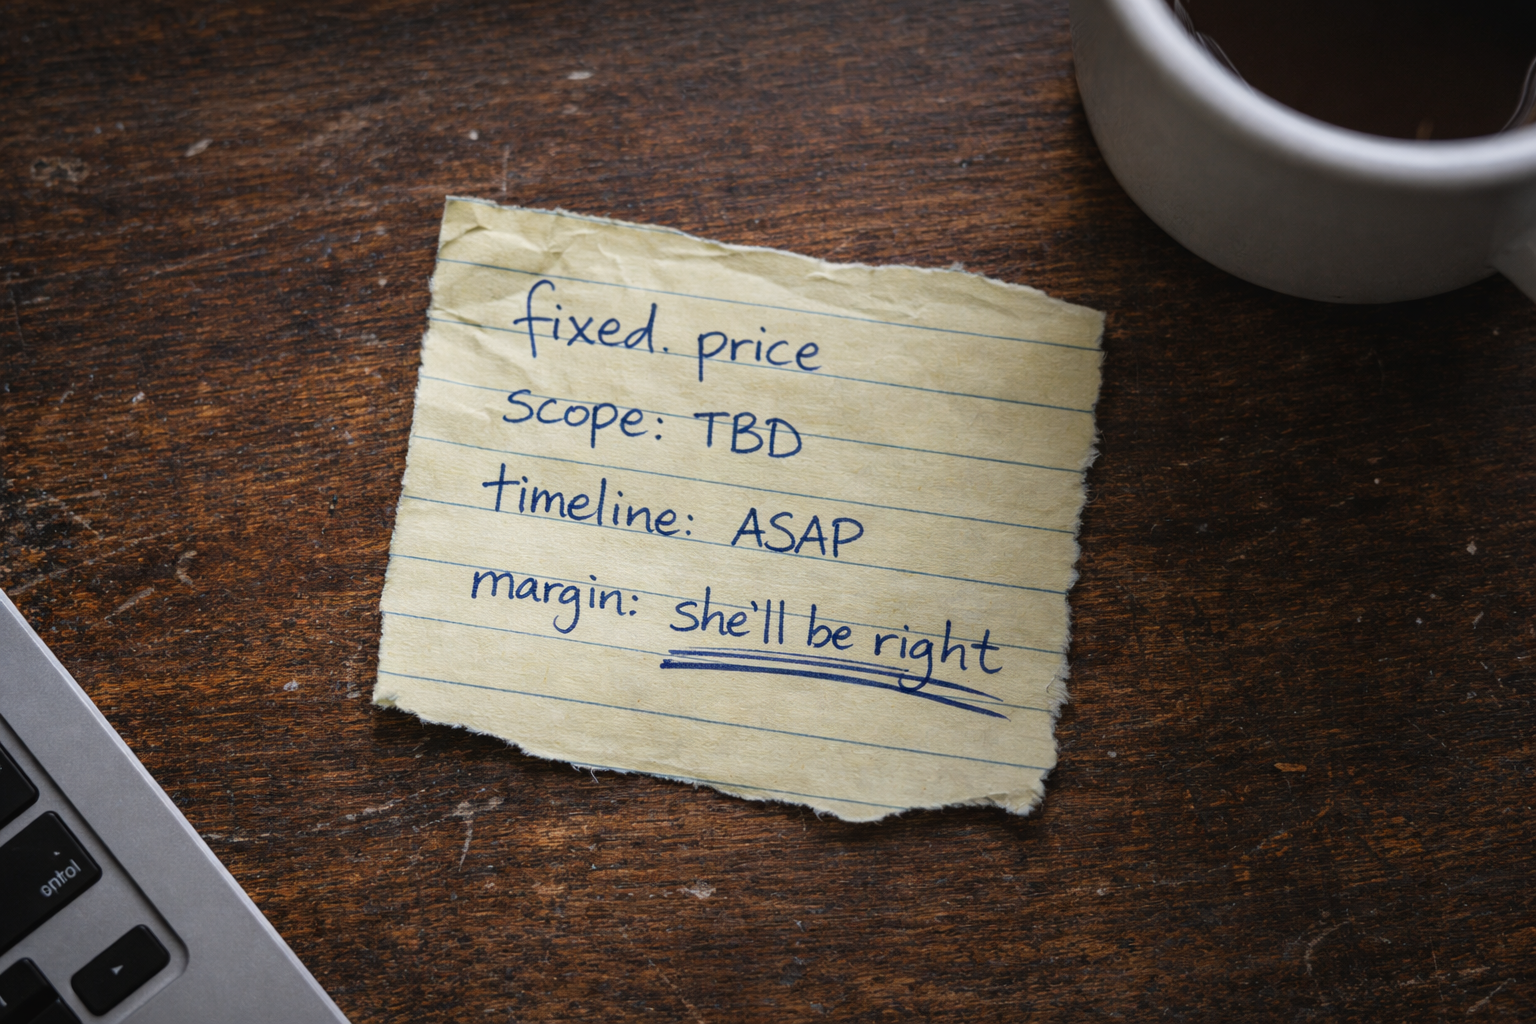 fixed. price
scope: TBD
timeline: ASAP
margin: she'll be right